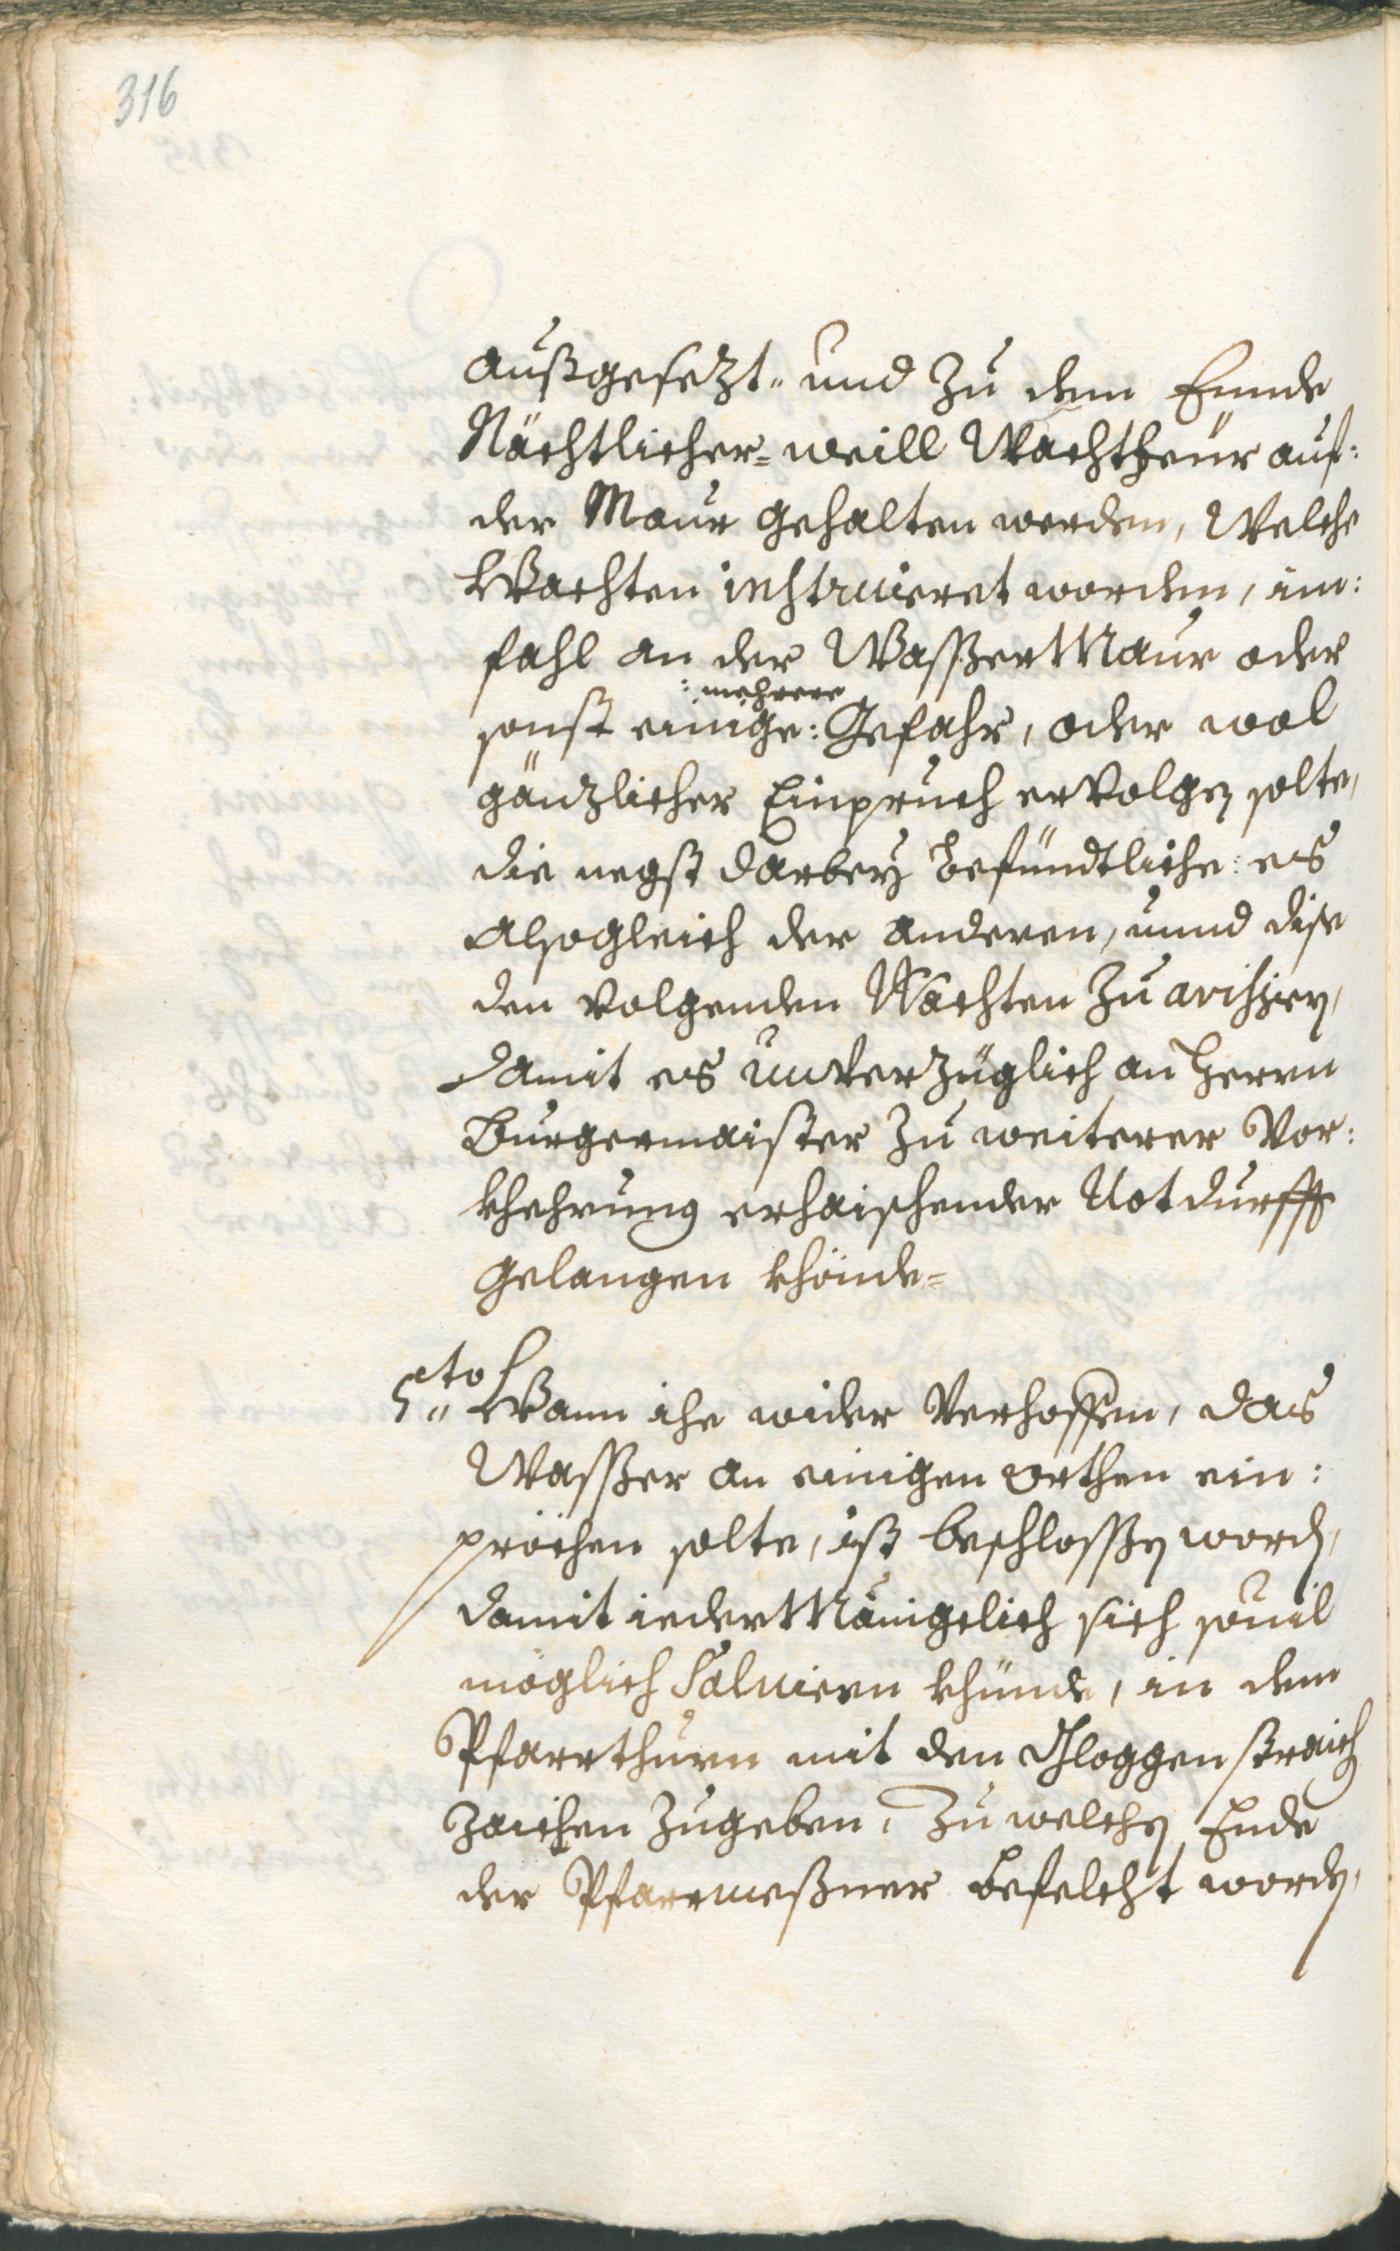 316
außgesezt- und zu dem Ennde
Nächtlicher- weill Wachtfeür auf:
der Maur gehalten werden, Welche
Wachten instruieret worden, im:
fahl an der Wasser Maur oder
: mehrere
sonst einige: Gefahr, oder wol
gänzlicher Einpruch ervolgen solte,
die negst darbey befündtliche: es
alsogleich der anderen, unnd dise
den volgenden Wachten zu avisieren,
damit es unverzüglich an Herrn
Burgermaister zu weiterer Vor:
khehrung erhaischender Notdurfft
gelangen khönde-
5to Wann ihe wider Verhoffen, das
Wasser an einigen orthen ein:
pröchen solte, ist beschlossen worden,
damit ieder Mänigelich sich souil
möglich Saluiern khünde, in dem
Pfarrthurn mit den Gloggenstraich
zaichen zugeben, zu welchen Ende
der Pfarrmeßner befelcht worden,